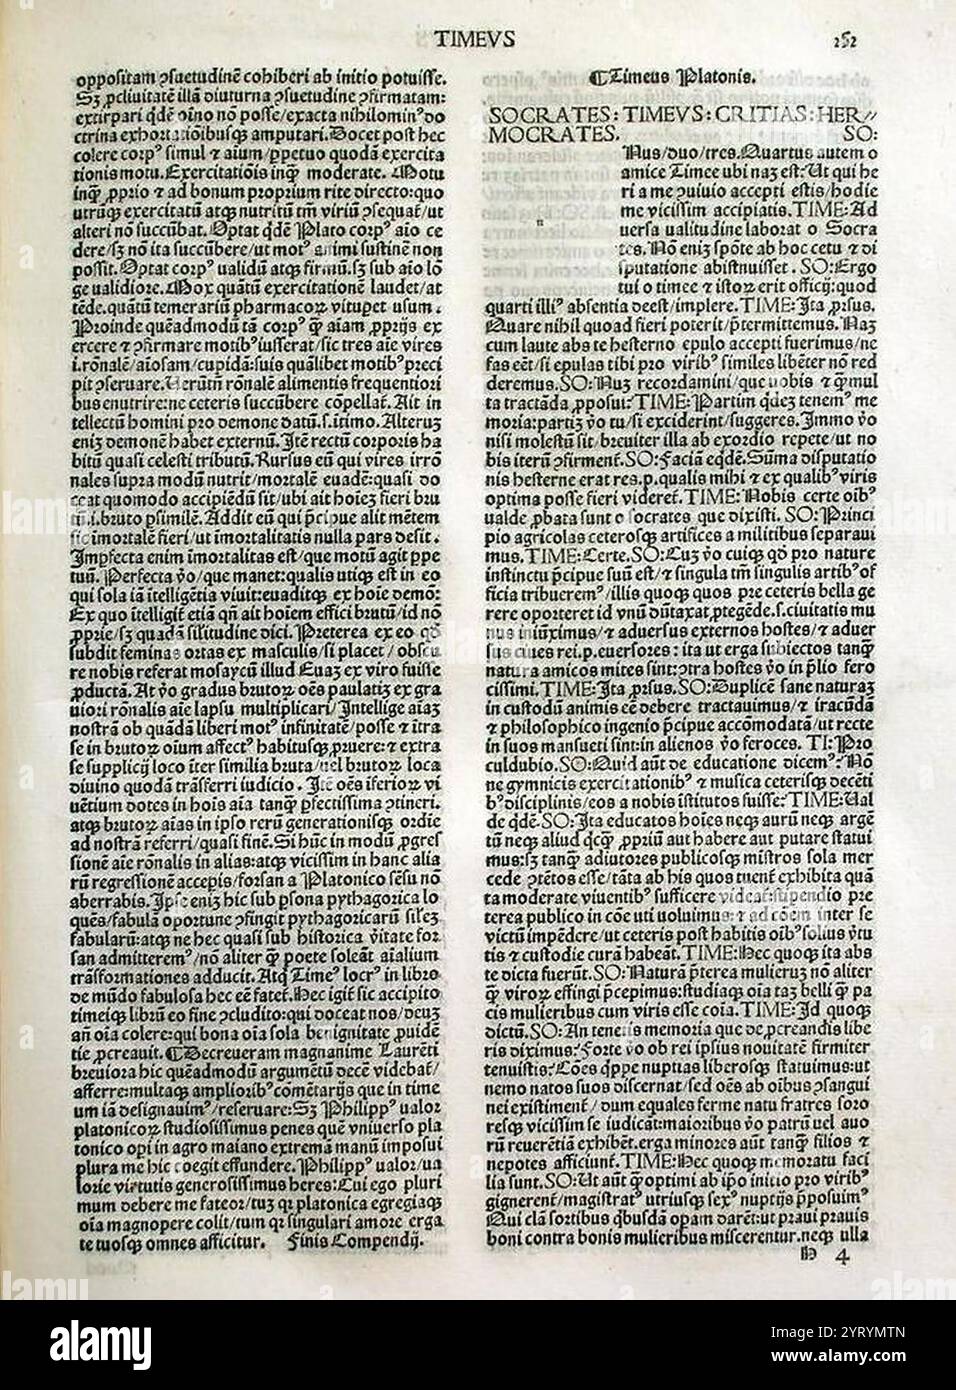 TIMEVS 252
oppositam ↄsuetudinē cohiberi ab initio potuisse.
Sꝫ ꝓcliuitatē illā diuturna ↄsuetudine ↄfirmatam:
extirpari qdē oīno nō posse/exacta nihilomin⁹ do
ctrina exhortationibusqꝫ amputari. Docet post hec
colere corp⁹ simul ⁊ aīum/ꝑpetuo quodā exercita
tionis motu. Exercitatiōis inqꝫ moderate. Motu
inqꝫ ꝓprio ⁊ ad bonum proprium rite directo: quo
utrūqꝫ exercitatū atqꝫ nutritū tm̄ viriū ↄsequat̄/ut
alteri nō succūbat. Optat qdē Plato corp⁹ aīo ce
dere/sꝫ nō ita succūbere/ut mot⁹ animi sustinē non
possit. Optat corp⁹ ualidū atqꝫ firmū. sꝫ sub aīo lō
ge ualidiore. Mox quātū exercitationē laudet/at
tēde. quātū temerariū pharmacoꝝ vituꝑet usum.
Proinde quēadmodū tā corp⁹ qꝫ aīam ꝓprijs ex
ercere ⁊ ↄfirmare motib⁹ iusserat/sic tres aīe vires
.i. rōnalē/aīosam/cupidā: suis quālibet motib⁹ preci
pit ↄseruare. Uerūtm̄ rōnalē alimentis frequentiori
bus enutrire: ne ceteris succūbere cōpellat̄. Ait in
tellectū homini pro demone datū .s. ītimo. Alterꝫ
eniꝫ demonē habet externū. Itē rectū corporis ha
bitū quasi celesti tributū. Rursus eū qui vires irrō
nales supra modū nutrit/mortalē euadē: quasi do
ceat quomodo accipiēdū sit/ubi ait hoieꝫ fieri bru
tū .i. bruto ꝑsimilē. Addit eū qui p̄cipue alit mētem
sic īmortalē fieri/ut īmortalitatis nulla pars desit.
Imꝑfecta enim īmortalitas est/que motū agit ꝑpe
tuū. Perfecta v̄o/que manet: qualis utiqꝫ est in eo
qui sola iā ītelligētia viuit: euaditqꝫ ex hoīe demō:
Ex quo ītelligit̄ etiā qn̄ ait hoīem effici brutū/id nō
ꝓprie/sꝫ quadā sīlitudine dici. Preterea ex eo qd̄
subdit feminas ortas ex masculis/si placet/obscu
re nobis referat mosaycū illud Euaꝫ ex viro fuisse
ꝓductā. At v̄o gradus brutoꝝ oēs paulatiꝫ ex gra
uiori rōnalis aīe lapsu multiplicari/Intellige aīaꝫ
nostrā ob quādā liberi mot⁹ infinitatē/posse ⁊ ītra
se in brutoꝝ oīum affect⁹ habitusqꝫ ꝓruere: ⁊ extra
se supplicij loco īter similia bruta/uel brutoꝝ loca
diuino quodā trāsferri iudicio. Itē oēs īferioꝝ vi
uētium dotes in hoīs aīa tanqꝫ ꝑfectissima ↄtineri.
atqꝫ brutoꝝ aīas in ipso rerū generationisqꝫ ordīe
ad nostrā referri/quasi finē. Si hūc in modū ꝓgres
sionē aīe rōnalis in alias: atqꝫ vicissim in hanc alia
rū regressionē accepis/forsan a Platonico sēsu nō
aberrabis. Ipse eniꝫ hic sub ꝑsona pythagorica lo
quēs/fabulā oportune ↄfingit pythagoricarū silꝫ
fabularū: atqꝫ ne hec quasi sub historica v̄itate for
san admitterem⁹/nō aliter qꝫ poete soleāt aīalium
trāsformationes adducit. Atqꝫ Time⁹ locr⁹ in libro
de mūdo fabulosa hec eē fatet̄. Hec igit̄ sic accipito
timeiqꝫ librū eo fine ↄcludito: qui doceat nos/deuꝫ
an̄ oīa colere: qui bona oīa sola benignitate ꝓuidē
tie ꝓcreauit. ¶Decreueram magnanime Laurēti
breuiora hic quēadmodū argumētū decē videbat̄/
afferre: multaqꝫ amplio­rib⁹ cōmētarijs que in time
um iā designauim⁹/reseruare: Sꝫ Philipp⁹ ualor
platonicoꝝ studiosissimus penes quē vniuerso pla
tonico opi in agro maiano extremā manū imposui
plura me hic coegit effundere. Philipp⁹ ualor/ua
lorie virtutis generosissimus heres: Cui ego pluri
mum debere me fateor/tuꝫ qꝛ platonica egregiaqꝫ
oīa magnopere colit/tum qꝛ singulari amore erga
te tuosqꝫ omnes afficitur. Finis Compendij.
¶Timeus Platonis.
SOCRATES: TIMEVS: CRITIAS: HER//
MOCRATES. SO:
Nus/duo/tres. Quartus autem o
amice Timee ubi naꝫ est: Ut qui he
ri a me ↄuiuio accepti estis/hodie
me vicissim accipiatis. TIME: Ad
uersa ualitudine laborat o Socra
tes. Nō eniꝫ spōte ab hoc cetu ⁊ di
sputatione abstinuisset. SO: Ergo
tui o timee ⁊ istoꝝ erit officiū: quod
quarti illi⁹ absentia deest/implere. TIME: Ita ꝓrsus.
Quare nihil quoad fieri poterit/p̄termittemus. Naꝫ
cum laute abs te hesterno epulo accepti fuerimus/ne
fas eēt/si epulas tibi pro virib⁹ similes libēter nō red
deremus. SO: Nuꝫ recordamini/que uobis ⁊ qꝫ mul
ta tractāda ꝓposui: TIME: Partim qdeꝫ tenem⁹ me
moria: partiꝫ v̄o tu/si exciderint/suggeres. Immo v̄o
nisi molestū sit/breuiter illa ab exordio repete/ut no
bis iterū ↄfirment̄. SO: Faciā eqdē. Sūma disputatio
nis hesterne erat res.p. qualis mihi ⁊ ex qualib⁹ viris
optima posse fieri videret̄. TIME: Nobis certe oīb⁹
ualde ꝓbata sunt o socrates que dixisti. SO: Princi
pio agricolas ceterosqꝫ artifices a militibus separaui
mus. TIME: Certe. SO: Cuꝫ v̄o cuiqꝫ qd̄ pro nature
instinctu p̄cipue suū est/⁊ singula tm̄ singulis artib⁹ of
ficia tribuerem⁹/illis quoqꝫ quos pre ceteris bella ge
rere oporteret id vnū dūtaxat ꝓtegēde .s. ciuitatis mu
nus iniūximus/⁊ aduersus externos hostes/⁊ aduer
sus ciues rei.p. euersores: ita ut erga subiectos tanqꝫ
natura amicos mites sint: ↄtra hostes v̄o in p̄lio fero
cissimi. TIME: Ita ꝓrsus. SO: Duplicē sane naturaꝫ
in custodū animis eē debere tractauimus/⁊ iracūdā
⁊ philosophico ingenio p̄cipue accōmodatā/ut recte
in suos mansueti sint: in alienos v̄o feroces. TI: Pro
culdubio. SO: Quid aūt de educatione dicem⁹: Nō
ne gymnicis exercitationib⁹ ⁊ musica ceterisqꝫ decēti
b⁹ disciplinis/eos a nobis īstitutos fuisse: TIME: Ual
de qdē. SO: Ita educatos hoīes neqꝫ aurū neqꝫ argē
tū neqꝫ aliud qcqꝫ ꝓpriū aut habere aut putare statui
mus: sꝫ tanqꝫ adiutores publicosqꝫ mīstros sola mer
cede ↄtētos esse/tāta ab his quos tuent̄ exhibita quā
ta moderate viuentib⁹ sufficere videat̄: stipendio pre
terea publico in cōe uti uoluimus: ⁊ ad cōem inter se
victū impēdere/ut ceteris post habitis oīb⁹ solius v̄tu
tis ⁊ custodie curā habeāt. TIME: Hec quoqꝫ ita abs
te dicta fuerūt. SO: Naturā p̄terea mulieruꝫ nō aliter
qꝫ viroꝝ effingi p̄cepimus: studiaqꝫ oīa taꝫ belli qꝫ pa
cis mulieribus cum viris esse coīa. TIME: Id quoqꝫ
dictū. SO: An tenetis memoria que de ꝓcreandis libe
ris diximus: Forte v̄o ob rei ipsius nouitatē firmiter
tenuistis: Cōes qppe nuptias liberosqꝫ statuimus: ut
nemo natos suos discernat/sed oēs ab oībus ↄsangui
nei existiment̄/dum equales ferme natu fratres soro
resqꝫ vicissim se iudicāt: maioribus v̄o patrū uel auo
rū reuerētiā exhibēt. erga minores aūt tanqꝫ filios ⁊
nepotes afficiunt̄. TIME: Hec quoqꝫ memoratu faci
lia sunt. SO: Ut aūt qꝫ optimi ab ip̄o initio pro virib⁹
gignerent̄/magistrat⁹ utriusqꝫ sex⁹ nuptijs p̄posuim⁹
Qui clā sortibus qbusdā opam darēt: ut praui prauis
boni contra bonis mulieribus miscerentur. neqꝫ ulla
H 4
alamy
Image ID: 2YRYMTN
www.alamy.com